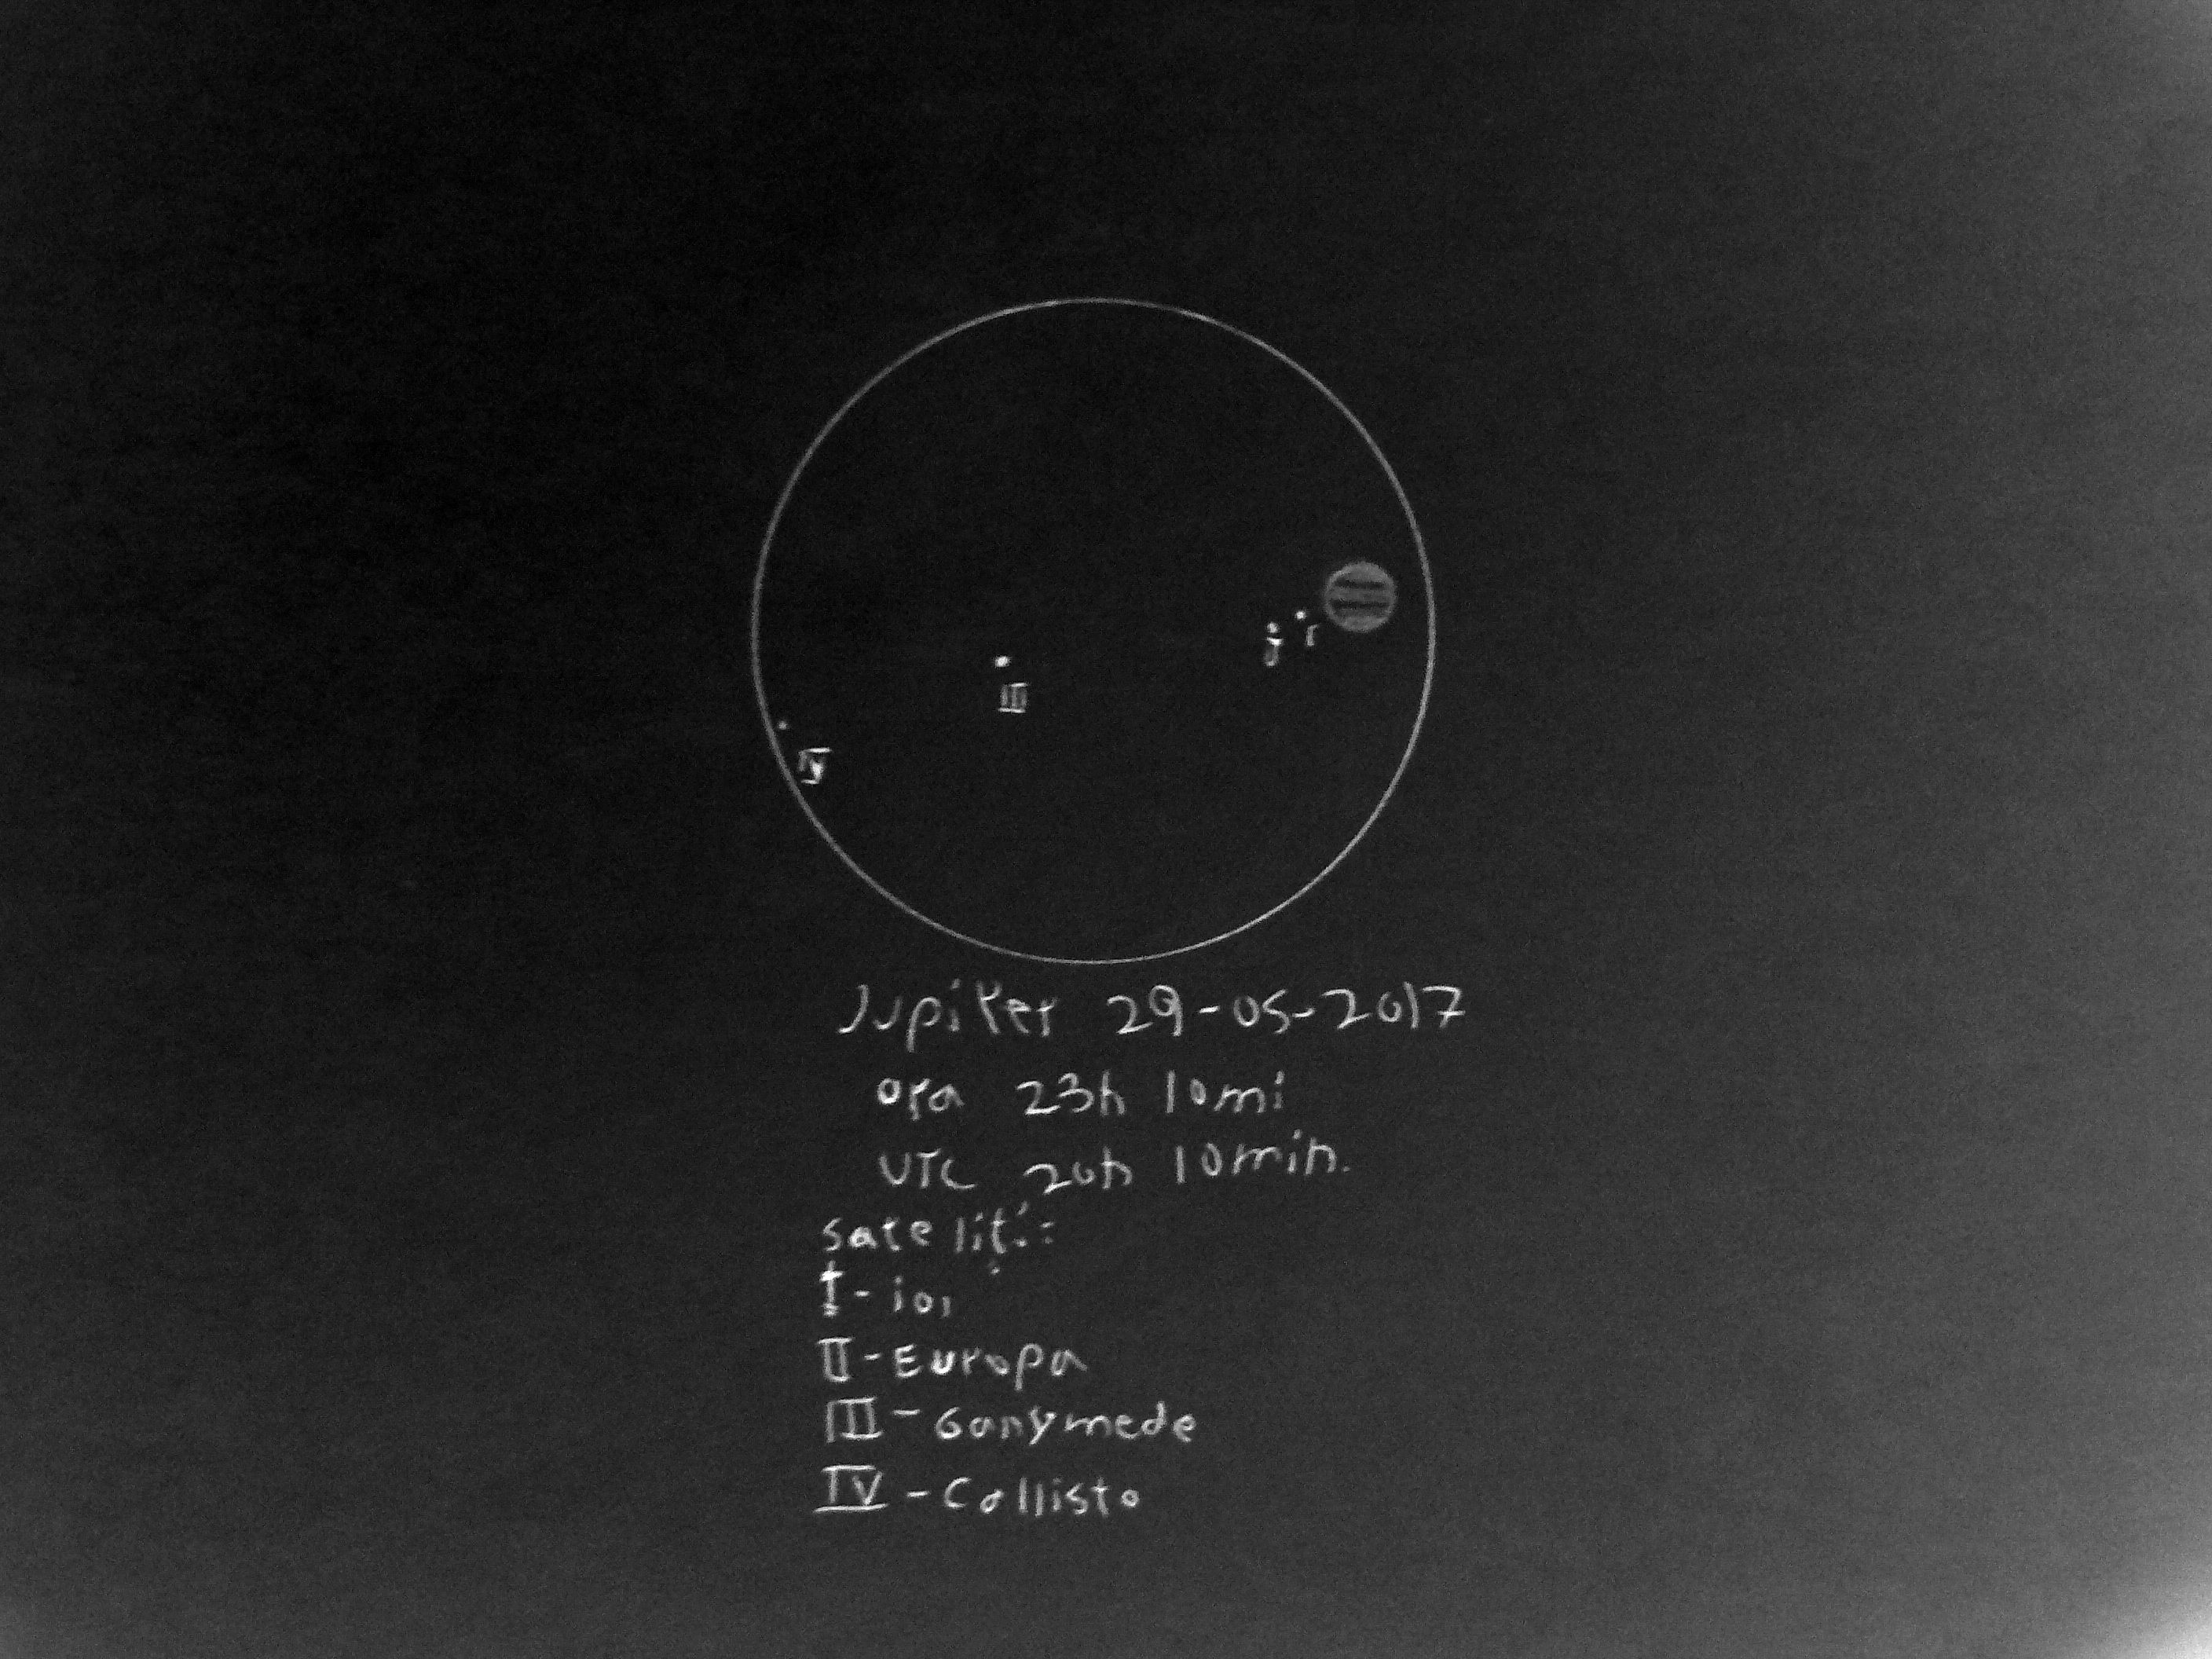 I
II
III
IV
Jupiter 29-05-2017
ora 23h 10mi
UTC 20h 10min.
sateliți:
I - io,
II - Europa
III - Ganymede
IV - Callisto